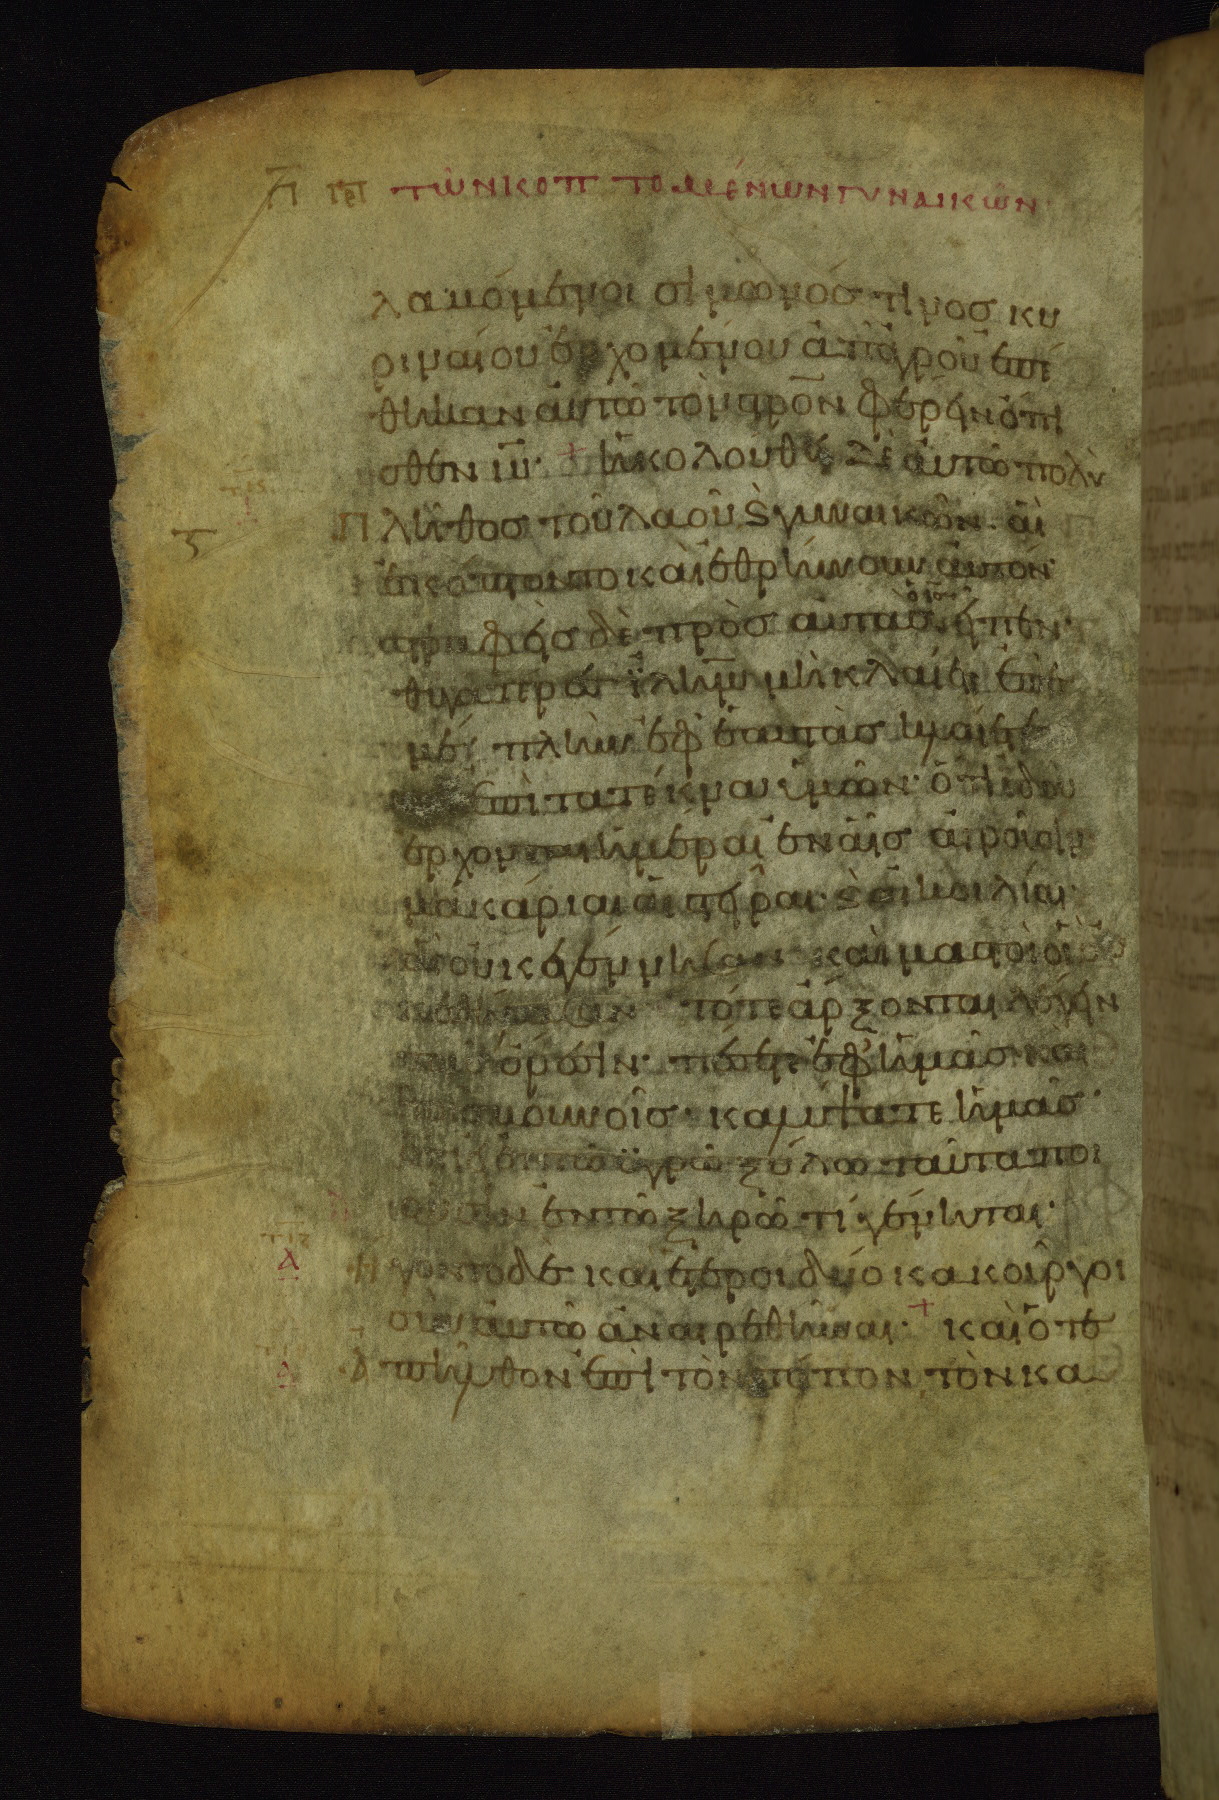 Π ΠΕΡ ΤΩΝ ΚΟΠΤΟΜΕΝΩΝ ΓΥΝΑΙΚΩΝ
λαβόμενοι σίμωνός τινος κυ
ριναίου ἐρχομένου ἀπ᾽ ἀγροῦ ἐπέ
θηκαν αὐτῶ τὸν σταυρον φέρειν ὄπι
σθεν ιυ· + ἠκολούθει δὲ αὐτῶ πολὺ
πλῆθος τοῦ λαοῦ ϗ γυναικῶν· αἳ
ἐκόπτοντο καὶ ἐθρήνουν αὐτόν·
στραφεὶς δὲ πρὸς αὐτὰς ὁ ις εἶπεν·
θυγατέρες ϊλημ μὴ κλαίετε ἐπ᾽ ἐ
μέ· πλὴν ἐφ᾽ ἑαυτὰς κλαίετε
ἐπὶ τὰ τέκνα ὑμῶν· ὅτι ἰδοὺ
ἔρχονται ἡμέραι ἐν αἷς ἐροῦσιν
μακάριαι αἱ στεῖραι· ϗ αἱ κοιλίαι
αἳ οὐκ ἐγέννησαν καὶ μαστοὶ οἳ οὐκ
τότε ἄρξονται λέγειν
ὄρεσιν· πέσετε ἐφ᾽ ἡμᾶς· καὶ
βουνοῖς· καλύψατε ἡμᾶς·
ὑγρῶ ξύλω ταῦτα ποι
ἐν τῶ ξηρῶ τί γένηται·
Ἤγοντο δὲ καὶ ἕτεροι δύο κακοῦργοι
σὺν αὐτῶ ἀναιρεθῆναι· + καὶ ὅτε
ἀπῆλθον ἐπὶ τὸν τόπον τὸν κα